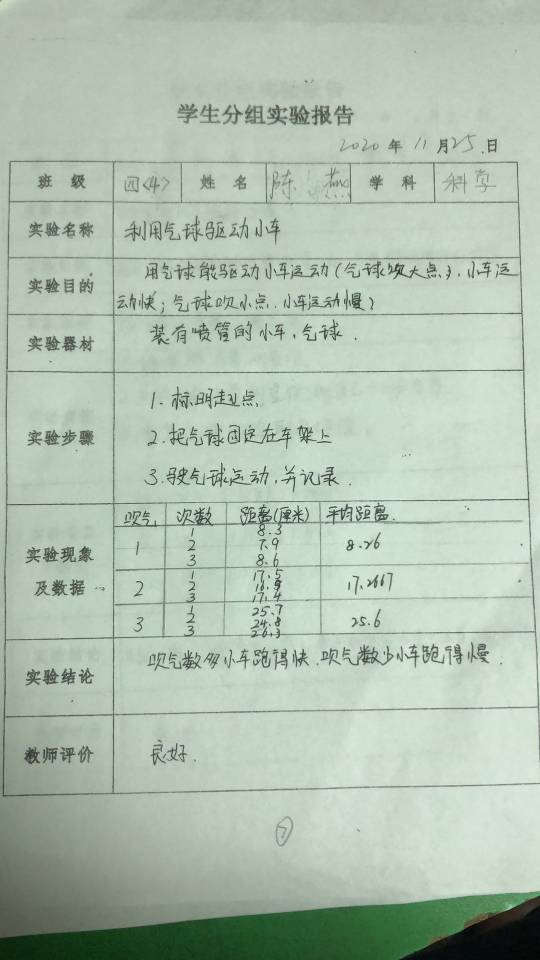 学生分组实验报告
2020 年 11 月 25 日
班 级 四<4> 姓 名 陈 燕 学 科 科学
实验名称 利用气球驱动小车
实验目的 用气球能驱动小车运动(气球吹大点,小车运
动快;气球吹小点.小车运动慢)
实验器材 装有喷管的小车,气球.
实验步骤
1.标明起点
2.把气球固定在车架上
3.驶气球运动,并记录.
实验现象
及数据
吹气 次数 距离(厘米) 平均距离.
1 1 8.3 8.26
2 7.9
3 8.6
2 1 17.5 17.2667
2 16.9
3 17.4
3 1 25.7 25.6
2 24.8
3 26.3
实验结论 吹气数多小车跑得快.吹气数少小车跑得慢.
教师评价 良好.
7